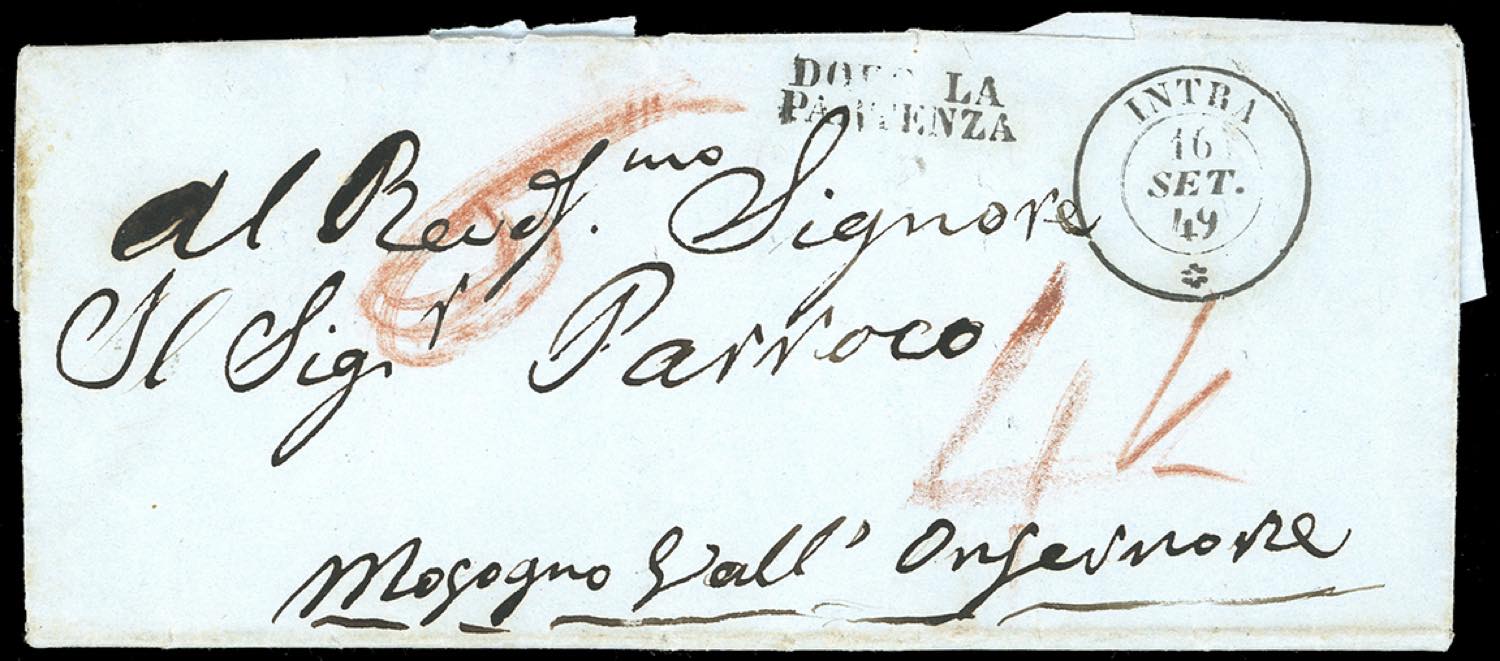 DOPO LA
PARTENZA
INTRA
16
SET.
49
Al Revd.mo Signore
Il Sigr Parroco
4 k
Mosogno Vall' Onsernone